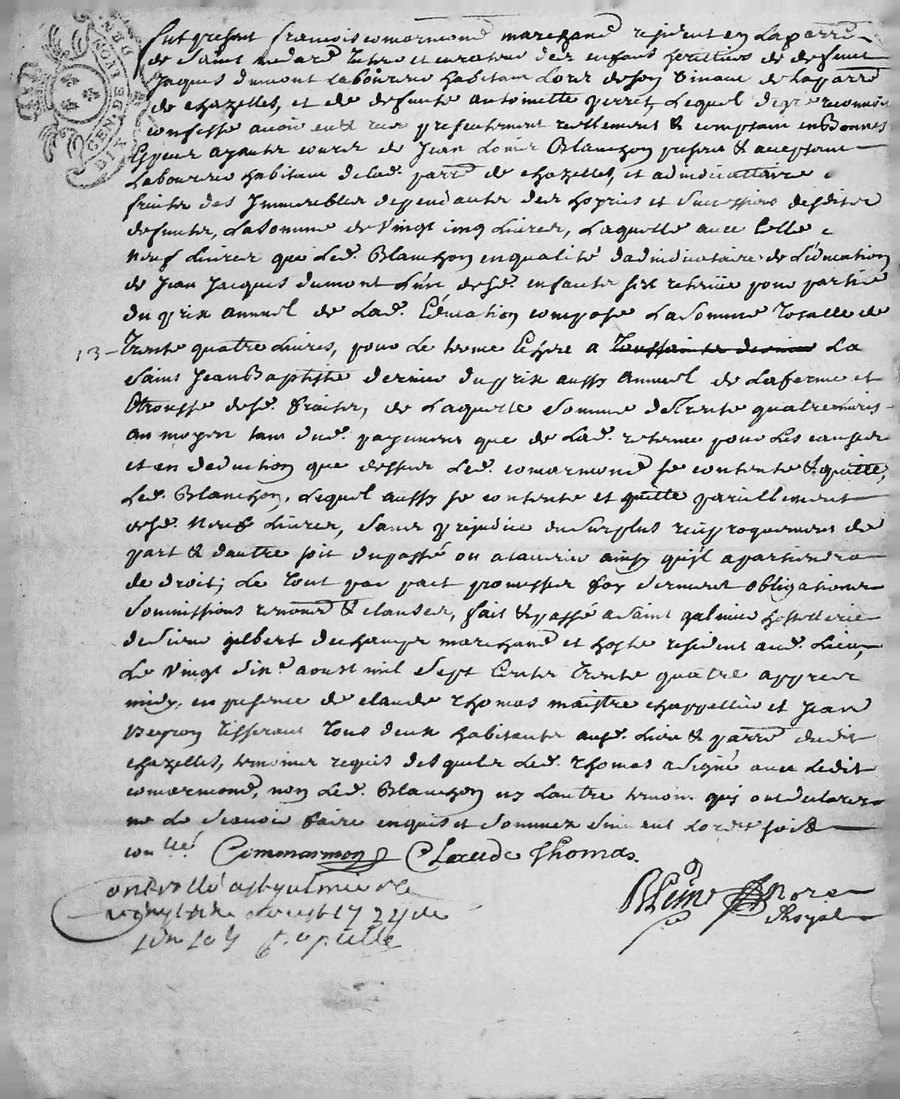 fut present francois comarmond marchand resident en La parr.e
de Saint medard tuteur et curateur des enfans heritiers de defunt
Jacques dumont laboureur habitant Lors de son vivant de La parr.e
de chazelles, et de defunte antoinette perret, Lequel degré reconnoit
confesse avoir eu & receu presentement reellement & comptant en Bonnes
Especes ayantes cours de Jean Blanchon present & acceptant
Laboureur habitant de lad. parr.e de chazelles, et adjudicataire
fruits des Immeubles dependantes des hoiries et Successions desdits
defunts, La Somme de Vingt cinq Livres, Laquelle avec Celle
neuf Livres que Led. Blanchon en qualité d'adjudicataire de L'éducation
de Jean Jacques dumont L'un desd. enfants s'est retenüe pour partie
du prix annuel de Lad. Education compose La Somme Totalle de
13 - trente quatre Livres, pour Le terme Echeu a Toussaints dernier La
Saint Jean Baptiste dernier du prix aussy annuel de La ferme et
Etrousse desd. fruits, de Laquelle Somme de trente quatre Livres
au moyen tant dud. payement que de Lad. retenue pour Les causes
et en deduction que dessus Led. comarmond se contente & quitte
Led. Blanchon, Lequel aussy se contente et quitte pareillement
desd. neuf Livres, Sans prejudice du Surplus reciproquement de
part & d'autre soit du passé ou a lavenir ainsy qu'il apartiendra
de droit; Le tout par pact promesses foy Serment obligations
Soumissions renond. & clauses, fait & passé a Saint galmier hostellerie
de Sieur gilbert duchamps marchand et hoste resident aud. Lieu,
Le Vingt aoust mil Sept Cents Trente quatre appres
midy, en presence de claude Thomas maistre chappellier et Jean
Peyron tisserant Tous deux habitants aud. Lieu & parr.e dudit
chazelles, temoins requis desquels Led. Thomas a Signé avec Ledit
comarmond, non Led. Blanchon ny L'autre temoin qui ont declarés
ne Scavoir faire enquis et Sommés
con.llé Commarmon Claude Thomas.
Controllé a St galmier le
aoust 1734
Royal